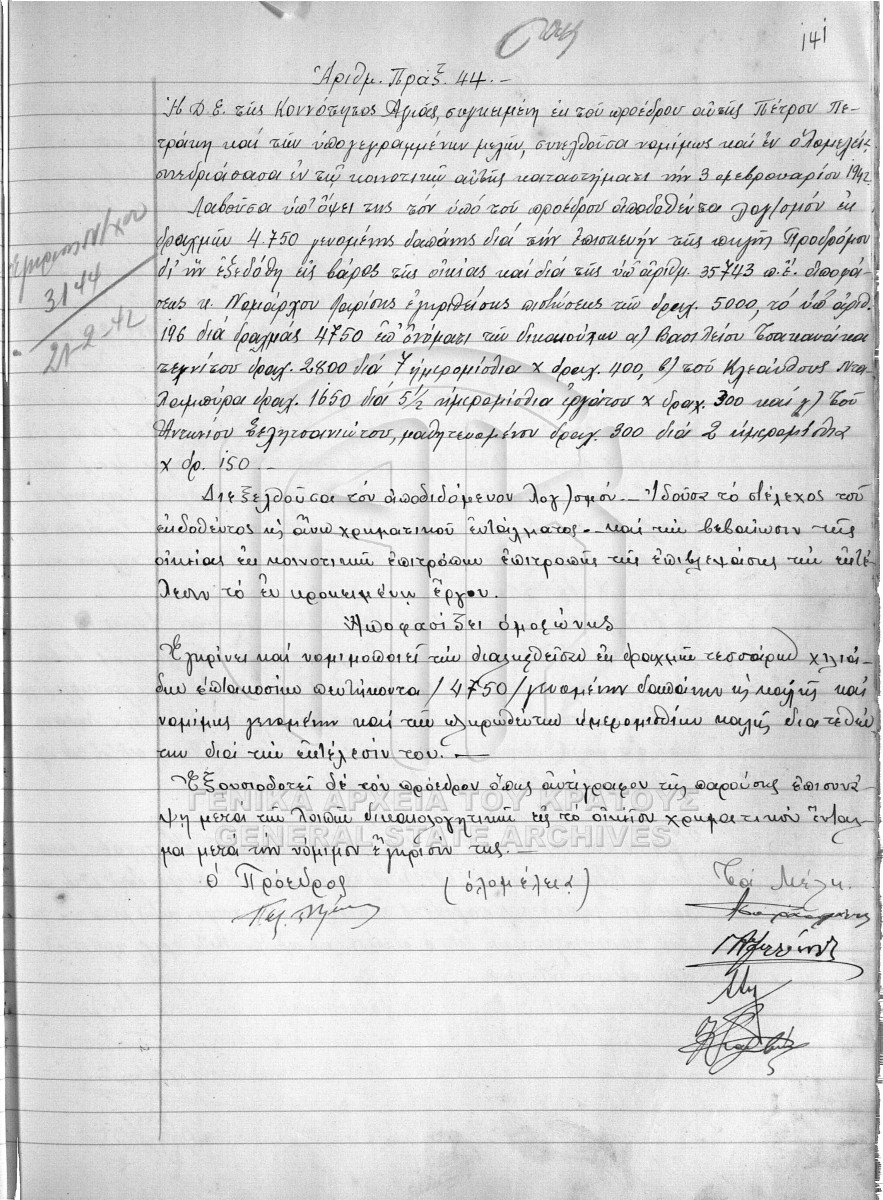 141
Ἀριθμ. Πράξ. 44.-
Ἡ Δ.Ε. τῆς Κοινότητος Ἁγιᾶς, συγκειμένη ἐκ τοῦ προέδρου αὐτῆς Πέτρου Πε-
τράκη καί τῶν ὑπογεγραμμένων μελῶν, συνελθοῦσα νομίμως καί ἐν ὁλομελείᾳ
συνεδριάσασα ἐν τῷ κοινοτικῷ αὐτῆς καταστήματι τήν 3 Φεβρουαρίου 1942
Λαβοῦσα ὑπ' ὄψει της τόν ὑπό τοῦ προέδρου ἀποδοθέντα λογ/σμόν ἐκ
δραχμῶν 4.750 γενομένης δαπάνης διά τήν ἐπισκευήν τῆς πηγῆς Προδρόμου
δι' ἥν ἐξεδόθη εἰς βάρος τῆς οἰκείας καί διά τῆς ὑπ' ἀριθμ. 35743 π.ἔ. ἀποφά-
σεως κ. Νομάρχου Λαρίσης ἐγκριθείσης πιστώσεως τῶν δραχ. 5000, τό ὑπ' ἀριθ.
196 διά δραχμάς 4750 ἐπ' ὀνόματι τῶν δικαιούχων α) Βασιλείου Τσακανίκα
τεχνίτου δραχ. 2800 διά 7 ἡμερομίσθια χ δραχ. 400, β) τοῦ Κλεάνθους Ντα-
λαμπύρα δραχ. 1650 διά 5 1/2 ἡμερομίσθια ἐργάτου χ δραχ. 300 καί γ) τοῦ
Ἀντωνίου Σελητσανιώτου, μαθητευομένου δραχ. 300 διά 2 ἡμερομίσθια
χ δρ. 150.-
Διεξελθοῦσα τόν ἀποδιδόμενον λογ/σμόν.- Ἰδοῦσα τό στέλεχος τοῦ
ἐκδοθέντος ὡς ἄνω χρηματικοῦ ἐντάλματος.- καί τήν βεβαίωσιν τῆς
οἰκείας ἐκ κοινοτικῶν ἐπιτρόπων ἐπιτροπῆς τῆς ἐπιβλεψάσης τήν ἐκτέ-
λεσιν τοῦ ἐν προκειμένῳ ἔργου.
Ἀποφασίζει ὁμοφώνως
Ἐγκρίνει καί νομιμοποιεῖ τήν διατεθεῖσαν ἐκ δραχμῶν τεσσάρων χιλιά-
δων ἑπτακοσίων πεντήκοντα /4750/ γενομένην δαπάνην ὡς καλῶς καί
νομίμως γενομένην καί τῶν πληρωθέντων ἡμερομισθίων καλῶς διατεθέν-
των διά τήν ἐκτέλεσίν του.-
Ἐξουσιοδοτεῖ δέ τόν πρόεδρον ὅπως ἀντίγραφον τῆς παρούσης ἐπισυνά-
ψῃ μετά τῶν λοιπῶν δικαιολογητικῶν εἰς τό οἰκεῖον χρηματικόν ἔνταλ-
μα μετά τήν νόμιμον ἔγκρισίν της.-
Ὁ Πρόεδρος (ὁλομέλεια) Τά Μέλη.
3144
21-2-42
ΓΕΝΙΚΑ ΑΡΧΕΙΑ ΤΟΥ ΚΡΑΤΟΥΣ
GENERAL STATE ARCHIVES